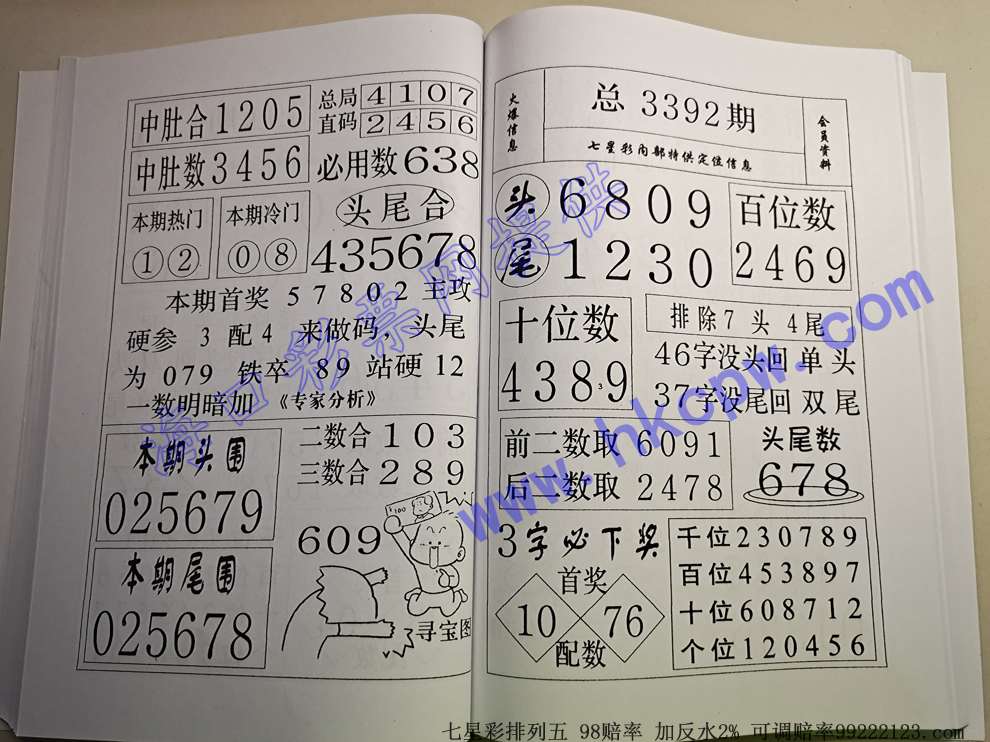 中肚合1205
总局 4107
直码 2456
中肚数3456
必用数638
本期热门
①②
本期冷门
⓪⑧
头尾合
435678
本期首奖 57802 主攻
硬参 3 配4 来做码，头尾
为 079 铁卒 89 站硬 12
一数明暗加 《专家分析》
本期头围
025679
二数合103
三数合289
本期尾围
025678
609
¥100
寻宝图
火爆信息
总 3392期
七星彩内部特供定位信息
会员资料
头 6809
尾 1230
百位数
2469
十位数
4389
3
排除7 头 4尾
46字没头回 单 头
37字没尾回 双 尾
前二数取 6091
后二数取 2478
头尾数
678
3字必下奖
首奖
10 76
配数
千位230789
百位453897
十位608712
个位120456
海口彩票网提供
www.hkcpw.com
七星彩排列五 98赔率 加反水2% 可调赔率99222123.com